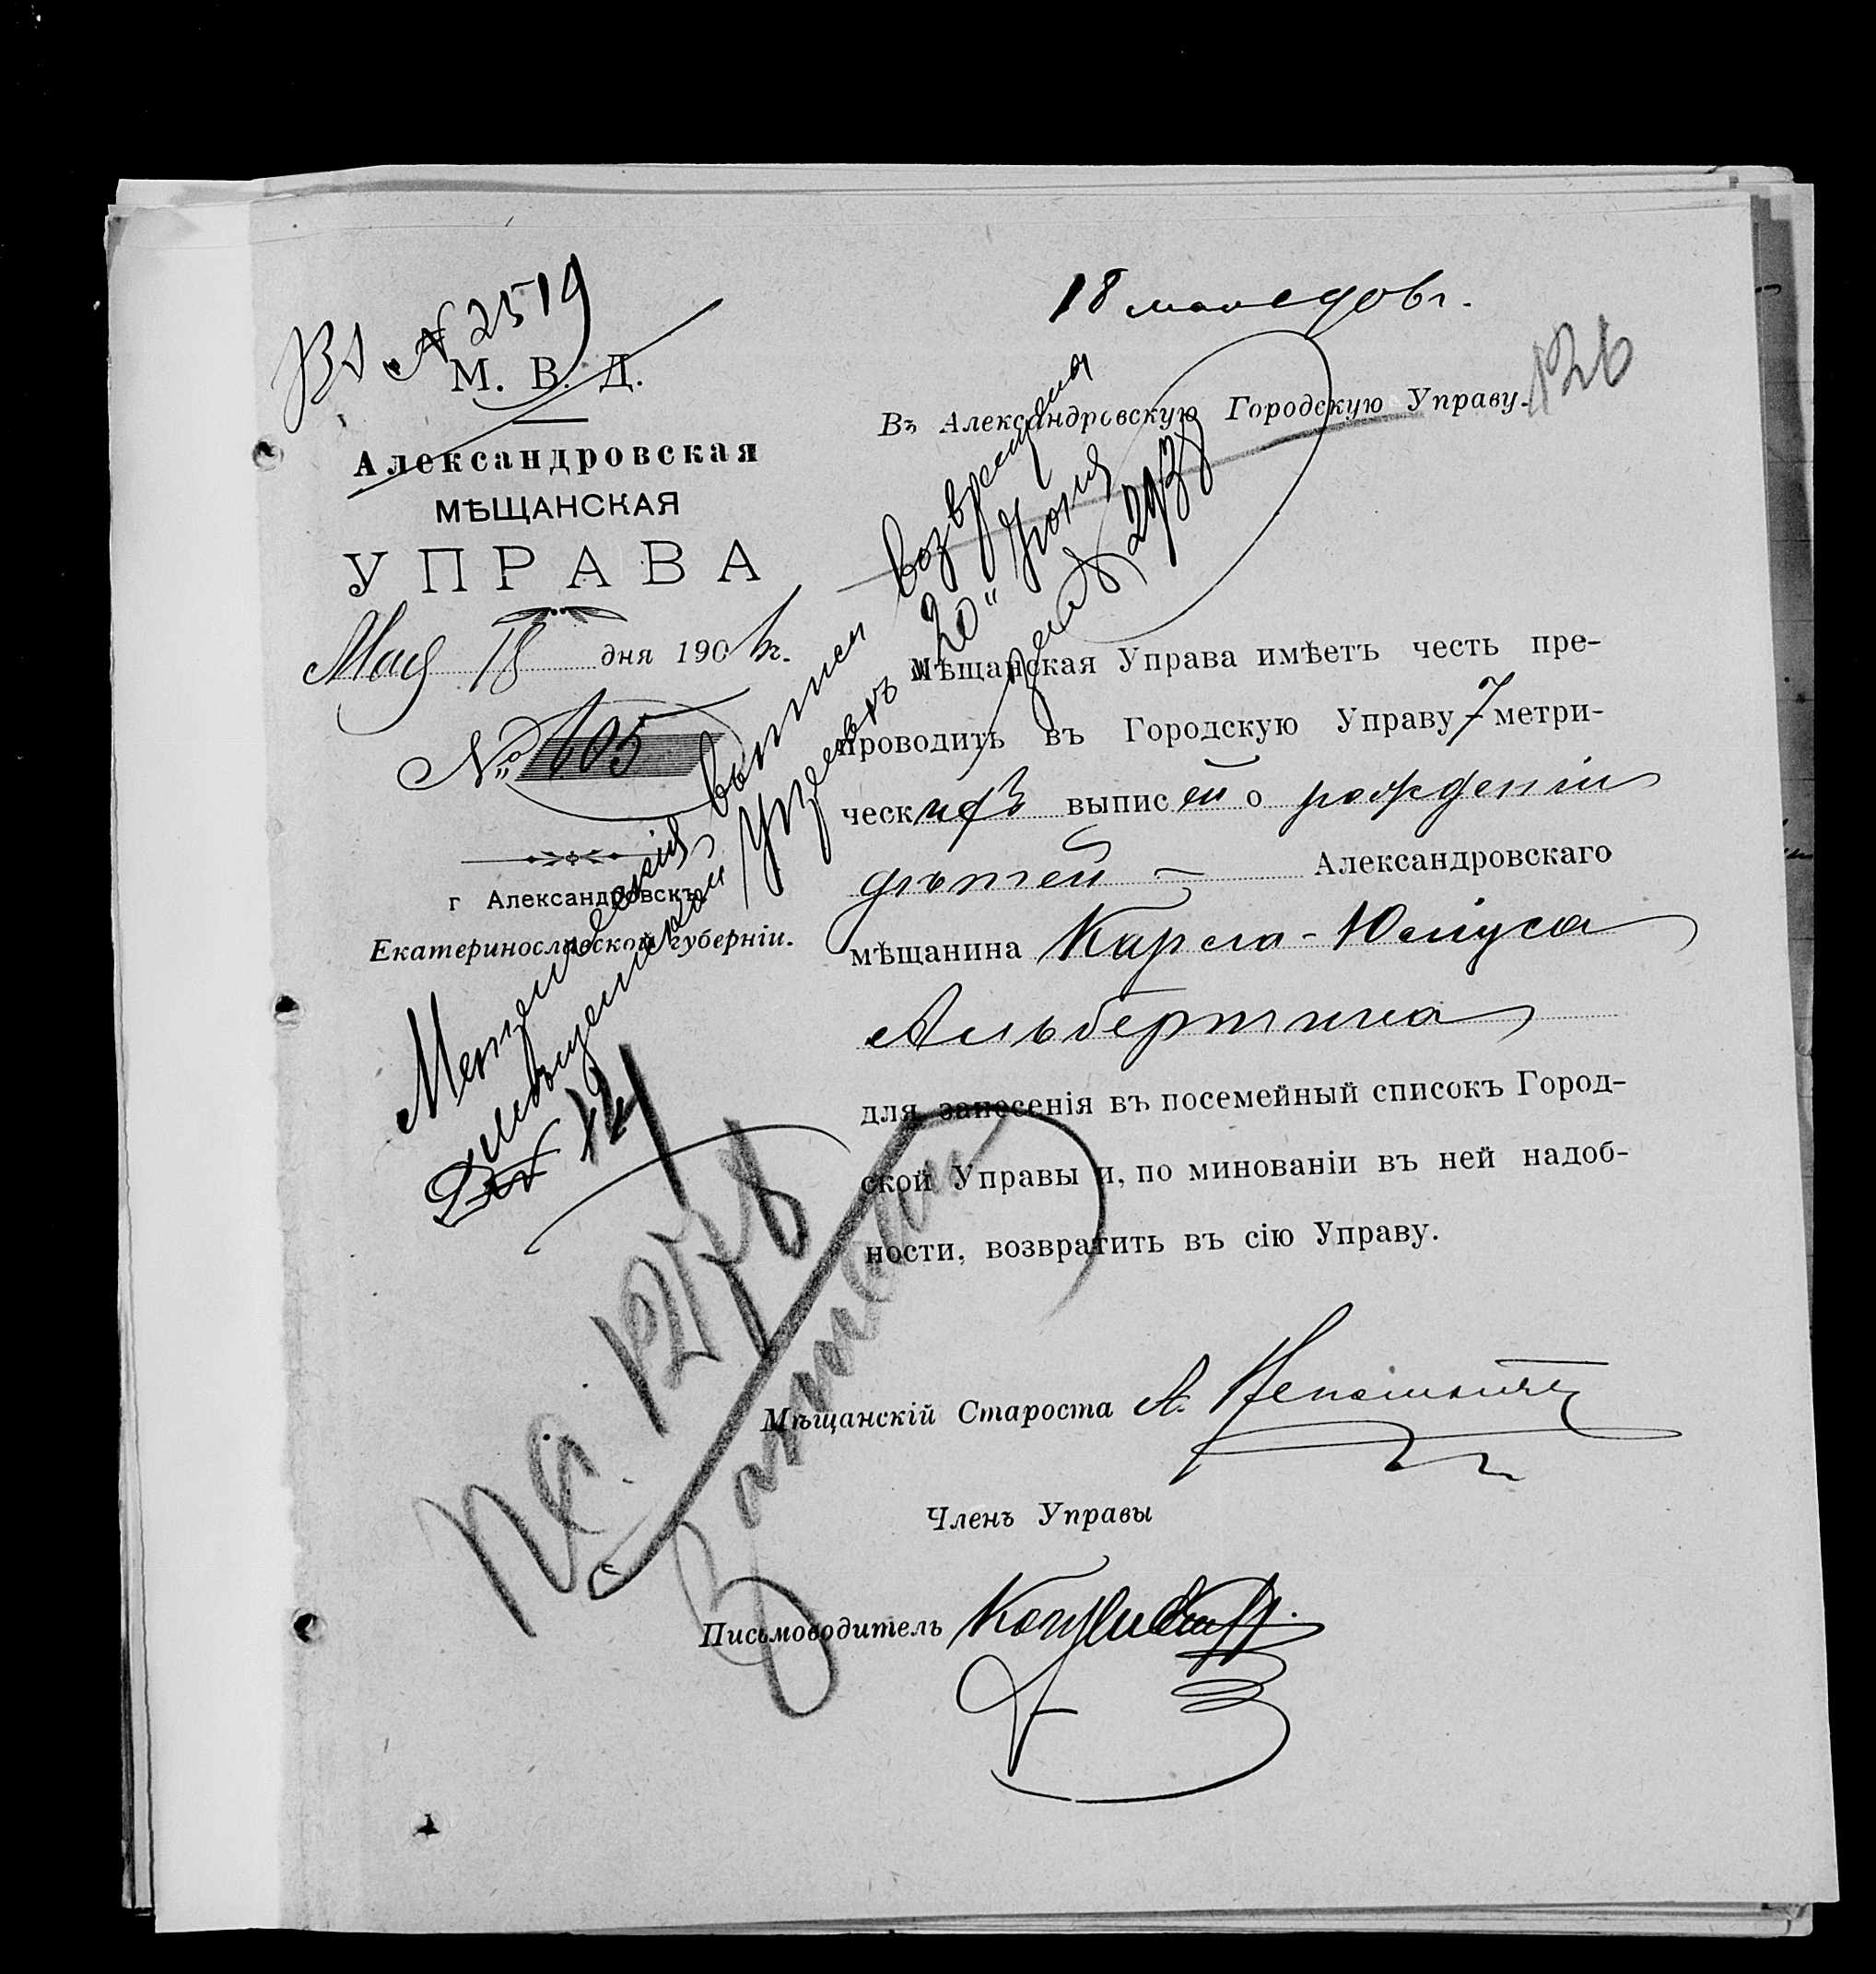 Вх № 2519
М. В. Д.
Александровская
МѢЩАНСКАЯ
УПРАВА
Мая 18 дня 190 г.
№ 105
г Александровскъ,
Екатеринославской губерніи.
18 мая 906 г.
126
Въ Александровскую Городскую Управу.
Мѣщанская Управа имѣетъ честь пре-
проводить въ Городскую Управу 7 метри-
ческихъ выписей о рожденіи
дѣтей — Александровскаго
мѣщанина Карла-Юліуса
Альбертина
для занесенія въ посемейный списокъ Город-
ской Управы и, по минованіи въ ней надоб-
ности, возвратить въ сію Управу.
Мѣщанскій Староста А.
Членъ Управы
Письмоводитель
Метрическія выписи возвращена
Мѣщанской Управѣ "20" Іюня
за № 2938